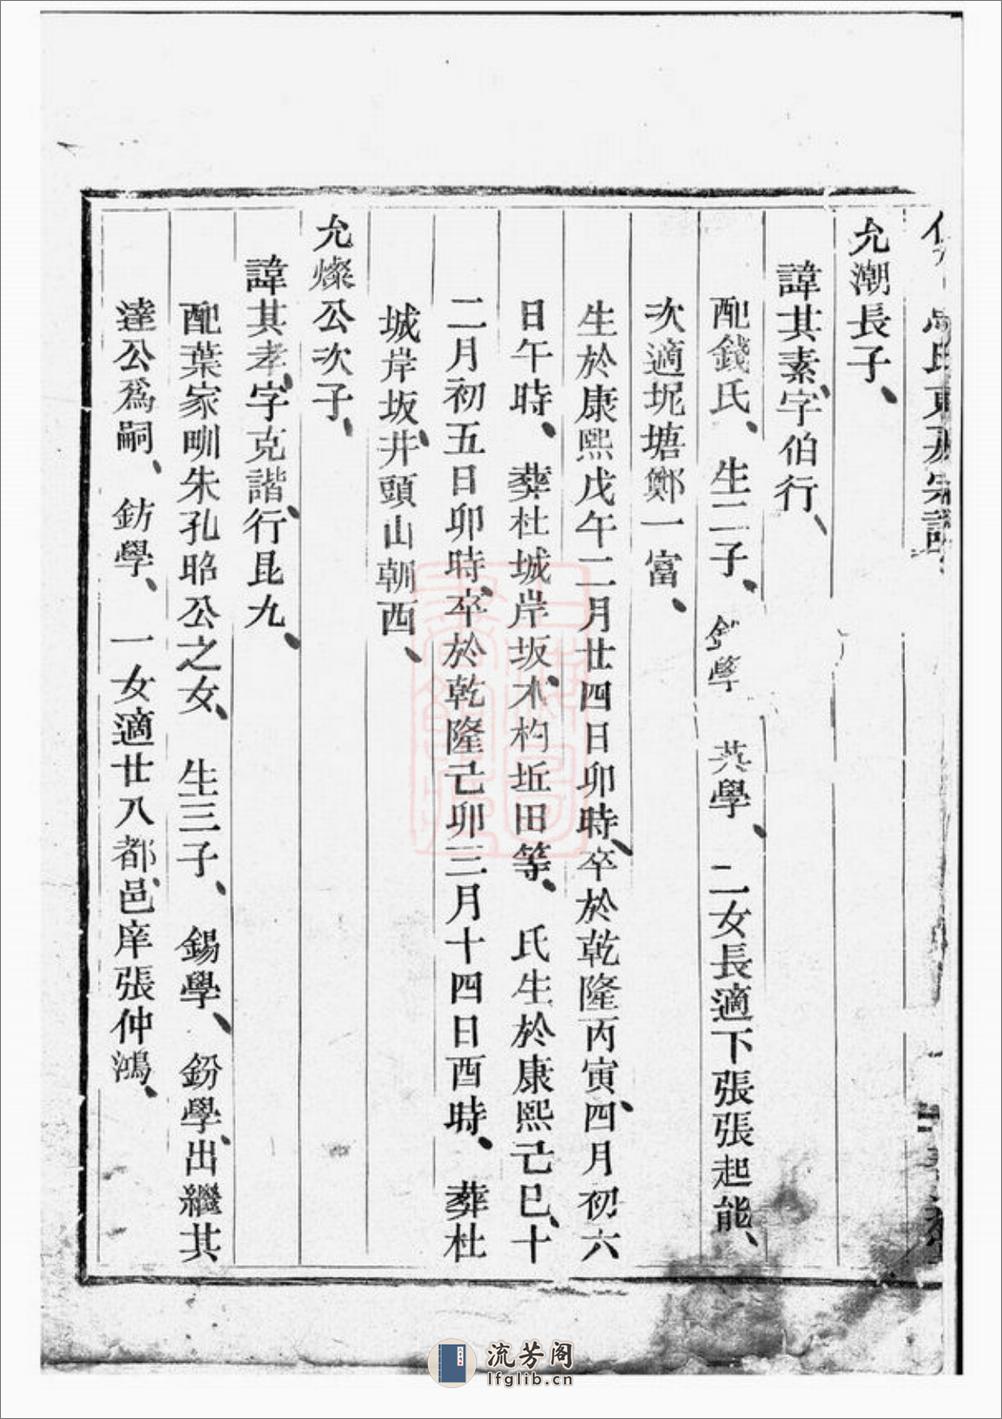 氏東
宗譜
允潮長子、
諱其素、字伯行、
配錢氏、生二子、學 英學、二女長適下張張起能、
次適坭塘鄭一富、
生於康熙戊午二月廿四日卯時、卒於乾隆丙寅、四月初六
日午時、葬杜城岸坂、木杓坵田等、氏生於康熙己巳、十
二月初五日卯時、卒於乾隆己卯三月十四日酉時、葬杜
城岸坂、井頭山朝西、
允燦公次子、
諱其孝、字克諧、行昆九、
配葉家甽朱孔昭公之女、生三子、錫學、鈖學、出繼其
達公爲嗣、鈁學、一女適廿八都、邑庠張仲鴻、
流芳阁
lfglib.cn